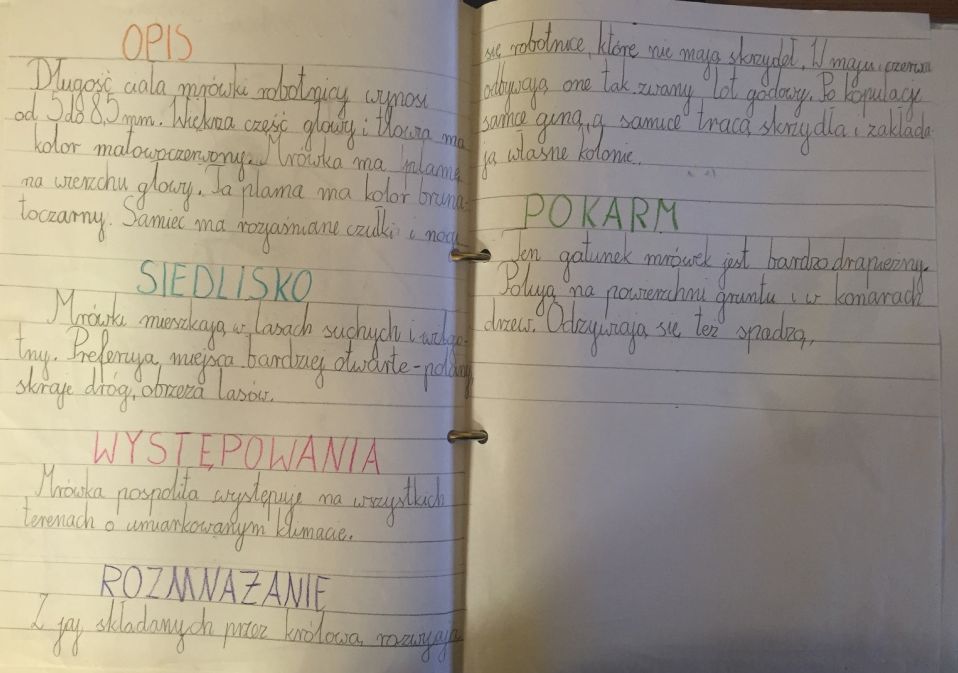 OPIS
Długość ciała mrówki robotnicy wynosi
od 5 do 8,5 mm. Większa część głowy i tłowia ma
kolor matowoczerwony. Mrówka ma plamę
na wierzchu głowy. Ta plama ma kolor bruna-
toczarny. Samiec ma rozjaśniane czułki i nogi
SIEDLISKO
Mrówki mieszkają w lasach suchych i wilgo-
tny. Preferują miejsca bardziej otwarte - polany,
skraje dróg, obrzeża lasów.
WYSTĘPOWANIA
Mrówka pospolita występuje na wszystkich
terenach o umiarkowanym klimacie.
ROZMNAŻANIE
Z jaj składanych przez królową rozwijają
się robotnice, które nie mają skrzydeł. W maju i czerwcu
odbywają one tak zwany lot godowy. Po kopulacji
samce giną, a samice tracą skrzydła i zakłada-
ją własne kolonie.
POKARM
Ten gatunek mrówek jest bardzo drapieżny.
Polują na powierzchni gruntu i w konarach
drzew. Odżywiają się też spadzą,